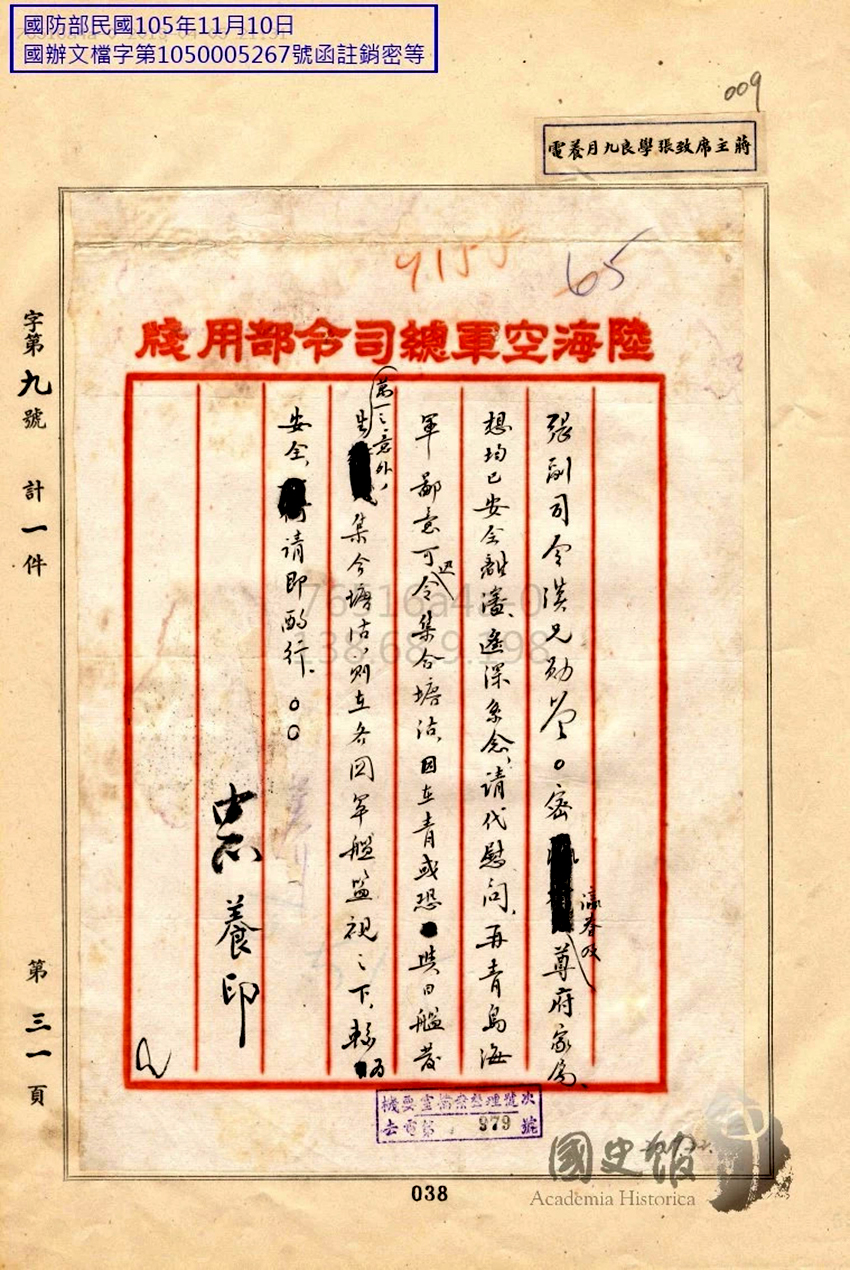 國防部民國105年11月10日
國辦文檔字第1050005267號函註銷密等
009
蔣主席致張學良九月養電
65
陸海空軍總司令部用牋
張副司令漢兄勛鑒。密瀛眷及尊府家屬、
想均已安全離瀋、遙深系念、請代慰問、再青島海
軍鄙意可迅令集合塘沽、因在青或恐與日艦發
生萬一之意外,集合塘沽、則在各國軍艦監視之下、較為
安全、請即酌行。○○
中正 養印
字第九號 計一件 第三一頁
機要室檔案整理號次
去電第 979 號
76516a4a-0
138.68.9.198
038
國史館
Academia Historica